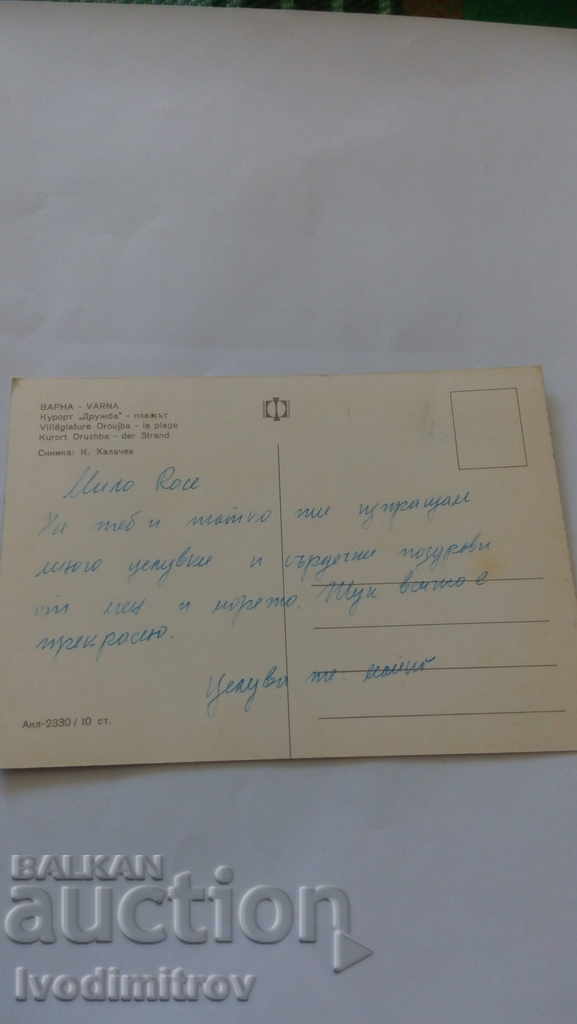 ВАРНА - VARNA
Курорт „Дружба" - плажът
Villégiature Droujba - la plage
Kurort Drushba - der Strand
Снимка: К. Халачев
Мило Росе
На теб и татко ти изпращам
много целувки и сърдечни поздрави
от мен и морето. Тук всичко е
прекрасно.
Целува те майка
Акл-2330 / 10 ст.
BALKAN
auction
Ivodimitrov